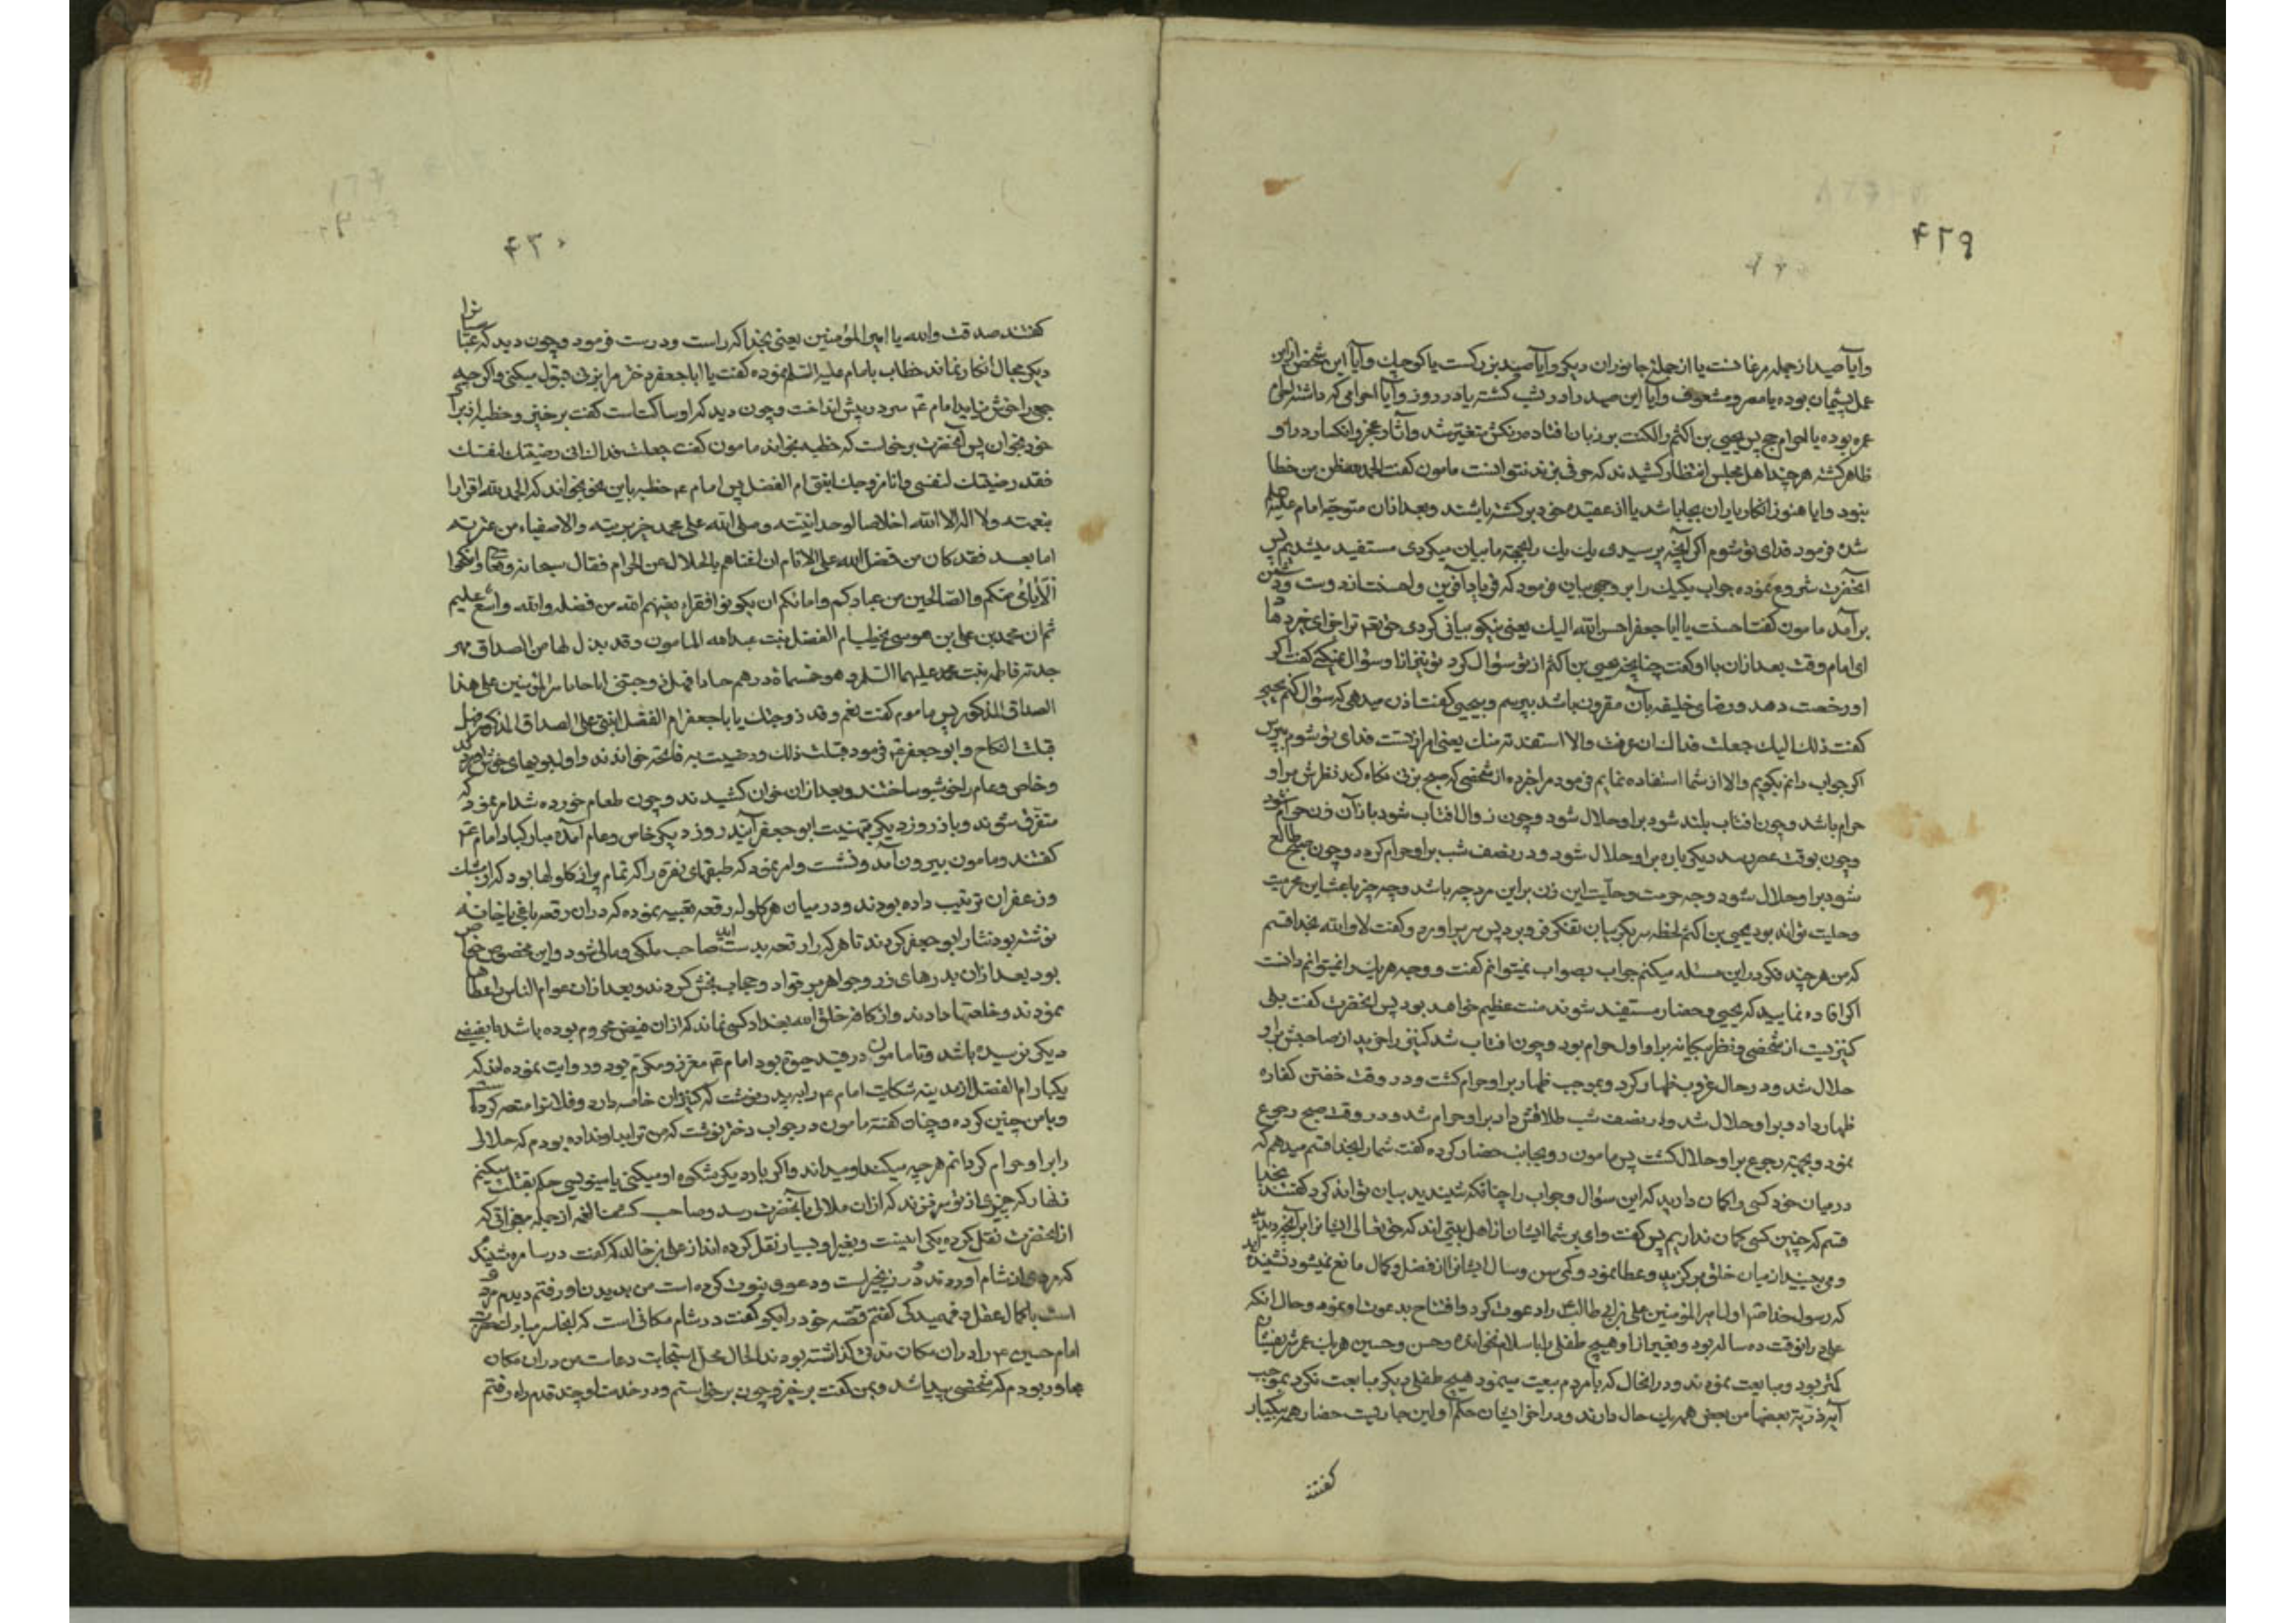 ۴۲۹
وآیا صید از جمله مرغانست یا از جمله جانوران دیگر وآیا صید بزرگست یا کوچک وآیا این شخص ازین
عمل پشیمان بوده یا مصر ومشعوف وآیا این صید را در شب کشته یا در روز وآیا احرامی که داشته احرام
عمره بوده یا احرام حج پس یحیی بن اکثم را لکنت بر زبان افتاده رنکش متغیر شد وآثار عجز وانکسار در او
ظاهر کشته هر چند اهل مجلس انتظار کشیدند که حرفی بزند نتوانست مامون کفت الحمد لله ظن من خطا
نبود وایا هنوز انکار یاران بجا باشد یا از عقیده خود برکشته باشند وبعد ازان متوجه امام علیه
شده فرمود فدای تو شوم اکر آنچه پرسیدی یك یك را بجهة ما بیان میکردی مستفید میشدیم پس
آنحضرت شروع نموده جواب یکیك را بر وجهی بیان فرمود که فریاد آفرین واحسنت از دوست ودشمن
برآمد مامون کفت احسنت یا ابا جعفر احسن الله الیك یعنی نیکو بیانی کردی حق تعم ترا جزای خیر دهاد
ای امام وقت بعد ازان با او کفت چنانچه یحیی بن اکثم از تو سؤال کرد تو نیز ازو سؤال میکنی کفت اکر
او رخصت دهد ورضای خلیفه بآن مقرون باشد بپرسم وبیحیی کفت اذن میدهی که سؤال کنم یحیی
کفت ذلك الیك جعلت فداك ان عرفت والا استفدته منك یعنی امر از تست فدای تو شوم بپرس
اکر جواب دانم بکویم والا از شما استفاده نمایم فرمود مرا خبر ده از شخصی که صبح بزنی نکاه کند نظرش بر او
حرام باشد وچون افتاب بلند شود بر او حلال شود وچون زوال افتاب شود باز آن زن حرام شود
وچون بوقت عصر رسد دیکر باره بر او حلال شود ودر نصف شب بر او حرام کردد وچون صبح طالع
شود بر او حلال شود وجه حرمت وحلّیت این زن براین مرد چه باشد وچه چیز باعث این حرمت
وحلیت تواند بود یحیی بن اکثم لحظه سر بکریبان تفکر فرو برد پس سر براورد وکفت لا والله بخدا قسم
که من هر چند فکر در این مسئله میکنم جواب بصواب نمیتوانم کفت ووجه هریك را نمیتوانم دانست
اکر افاده نمایید که یحیی وحضار مستفید شوند منت عظیم خواهد بود پس آنحضرت کفت بلی
کنیزیست از شخصی ونظر بیکانه بر او اول حرام بود وچون افتاب شد کنیز را خرید از صاحبش بر او
حلال شد ودر حال غروب ظهار کرد وبموجب ظهار بر او حرام کشت ودر وقت خفتن کفاره
ظهار داد وبر او حلال شد ودر نصف شب طلاقش داد بر او حرام شد ودر وقت صبح رجوع
نمود وبجهة رجوع بر او حلال کشت پس مامون رو بجانب حضار کرده کفت شما را بخدا قسم میدهم که
درمیان خود کسی را کمان دارید که این سؤال وجواب را چنانکه شنیدید بیان تواند کرد کفتند بخدا
قسم که چنین کسی کمان نداریم پس کفت وای بر شما ایشان از اهل بیتی اند که حق تعالی ایشانرا بر آنچه دیدید
ومی بینید از میان خلق برکزیده وعطا نموده وکمی سن وسال ایشانرا از فضل وکمال مانع نمیشود نشنیده اید
که رسول خدا صم اول امیر المؤمنین علی بن ابی طالب را دعوت کرد وافتتاح بدعوت او نموده وحال آنکه
علی در انوقت ده ساله بود وبغیر از او هیچ طفلی را باسلام نخوانده وحسن وحسین هریك عمر شریفشان
کمتر بود ومبایعت نمودند ودر انحال که با مردم بیعت مینمود هیچ طفلی دیکر مبایعت نکرد بموجب
آیه ذریة بعضها من بعض همه یك حال دارند ودر اخر ایشان حکم اولین جاریست حضار همه بیکبار
کفتند
۴۳۰
کفتند صدقت والله یا امیر المؤمنین یعنی بخدا که راست ودرست فرمود وچون دید که عباسیانرا
دیکر مجال انکار نماند خطاب بامام علیه السلم نموده کفت یا ابا جعفر دختر مرا بزنی قبول میکنی واکر چه
جمعی را خوش نیاید امام عم سر در پیش انداخت وچون دید که او ساکت است کفت برخیز وخطبه از برای
خود بخوان پس آنحضرت برخاست که خطبه بخواند مامون کفت جعلت فداك انی رضیتك لنفسك
فقد رضیتك لنفسی وانا مزوجك ابنتی ام الفضل پس امام عم خطبه باین نحو بخواند که الحمد لله اقرارا
بنعمته ولا اله الا الله اخلاصا لوحدانیته وصلی الله علی محمد خیر بریته والاصفیاء من عترته
اما بعد فقد کان من فضل الله علی الانام ان اغناهم بالحلال عن الحرام فقال سبحانه وتعا وانکحوا
الایامی منکم والصالحین من عبادکم وامائکم ان یکونوا فقراء یغنهم الله من فضله والله واسع علیم
ثم ان محمد بن علی بن موسی یخطب ام الفضل بنت عبدالله المامون وقد بذل لها من الصداق مهر
جدته فاطمه بنت محمد علیهما السلم وهو خمسمائة درهم جیادا فهل زوجتنی ایاها یا امیر المؤمنین علی هذا
الصداق المذکور پس مامون کفت نعم وقد زوجتك یا باجعفر ام الفضل ابنتی علی الصداق المذکور فهل
قبلت النکاح وابو جعفر عم فرمود قبلت ذلك ورضیت به فاتحه خواندند واول ببویهای خوش
وخاص وعام را خوشبو ساختند وبعد ازان خوان کشیدند وچون طعام خورده شد امر نمود که
متفرق شوند وباز روز دیکر بتهنیت ابو جعفر آیند روز دیکر خاص وعام آمده مبارکباد امام عم
کفتند ومامون بیرون آمد ونشست وامر نمود که طبقهای نقره را که تمام پر از کلولها بود که از مشك
وزعفران ترتیب داده بودند ودر میان هر کلوله رقعه تعبیه نموده که دران رقعه باغی یا خانه
نوشته بود نثار ابو جعفر کردند تا هر که را رقعه بدست آید صاحب ملکی ومالی شود واین مخصوص خواص
بود بعد ازان بدرهای زر وجواهر بر قواد وحجاب بخش کردند وبعد ازان عوام الناس را عطاها
نمودند وخلعتها دادند واز کافه خلق الله بغداد کسی نماند که ازان فیض محروم بوده باشد یا بفیضی
دیکر نرسیده باشد وتا مامون در قید حیوة بود امام عم معزز ومکرم بود وروایت نموده اند که
یکبار ام الفضل از مدینه شکایت امام عم را به پدر نوشت که کنیزان خاصه دارد وفلانرا متعه کرده است
وبا من چنین کرده وچنان کفته مامون در جواب دختر نوشت که من ترا باو نداده بودم که حلالی
را بر او حرام کردانم هر چه میکند او میداند واکر بار دیکر شکوه او میکنی یا مینویسی حکم بقتلت میکنم
زنهار که چیزی از تو سر نزند که ازان ملالی بآنحضرت رسد وصاحب کشف الغمه از جمله معجزاتی که
از آنحضرت نقل کرده یکی اینست وبغیر او بسیار نقل کرده اند از علی بن خالد که کفت در سامره شنیدم
که مردی از شام آوردند ودر زنجیر است ودعوی نبوت کرده است من بدیدن او رفتم دیدم مردی
است با کمال عقل وفهمیدکی کفتم قصه خود را بکو کفت در شام مکانی است که سر مبارك حضرت
امام حسین عم را دران مکان مدتی کذاشته بودند الحال محل استجابت دعاست من دران مکان
مجاور بودم که شخصی پیدا شد وبمن کفت برخیز چون برخواستم ودر خدمت او چند قدم راه رفتم